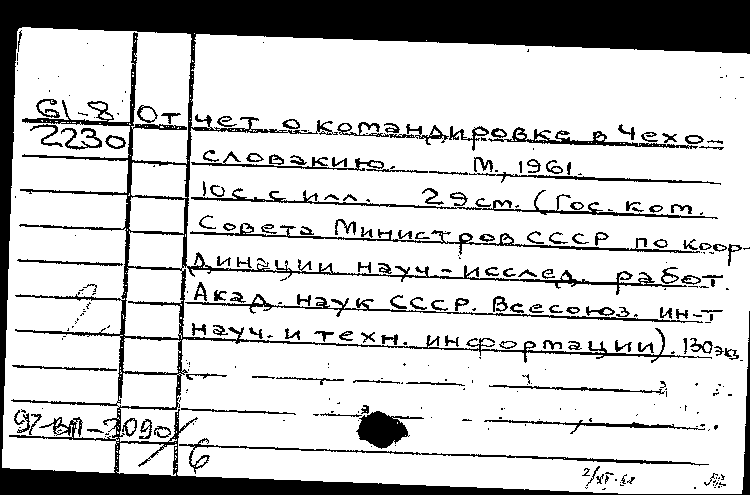 61-8 Отчет о командировке в Чехо-
2230 словакию. М., 1961.
10 с. с илл. 29 см. (Гос. ком.
Совета Министров СССР по коор-
динации науч.-исслед. работ.
Акад. наук СССР. Всесоюз. ин-т
науч. и техн. информации). 130 экз.
2
97-ВП-2090/6